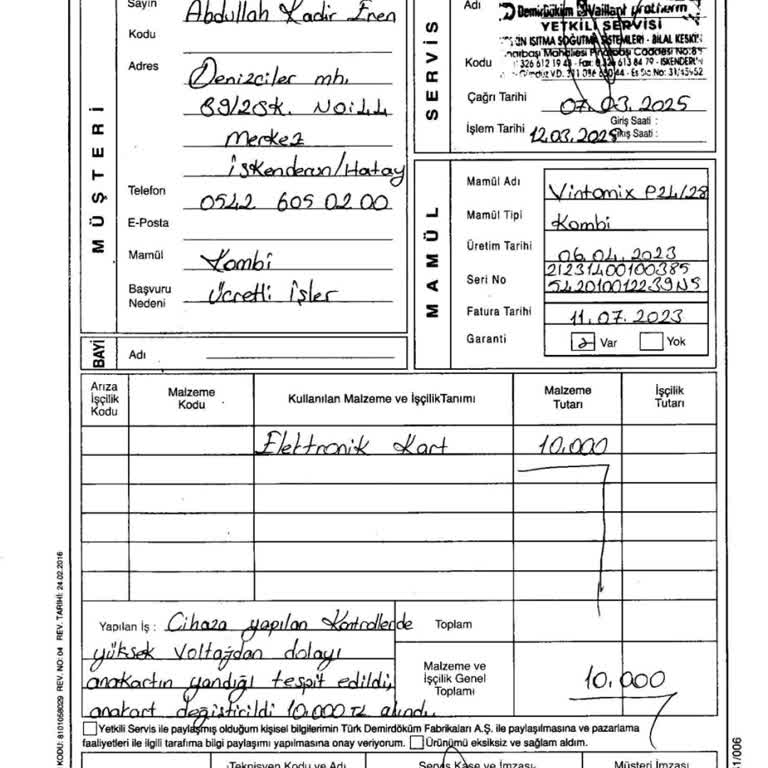 MÜŞTERİ
Sayın Abdullah Kadir Eren
Kodu
Adres Denizciler mh.
89/2 SK. NO:44
Merkez
İskenderun/Hatay
Telefon 0542 605 02 00
E-Posta
Mamül Kombi
Başvuru Nedeni Ücretli İşler
BAYİ
Adı
SERVİS
Adı DemirDöküm Vaillant protherm
YETKİLİ SERVİSİ
ISITMA SOĞUTMA SİSTEMLERİ - BİLAL KESKİN
Caddesi No:8
Kodu 326 612 19 Fax: 326 613 84 79 - İSKENDERUN
Çağrı Tarihi 07.03.2025
Giriş Saati :
İşlem Tarihi 12.03.2025
Çıkış Saati :
MAMÜL
Mamül Adı Vintomix P24/28
Mamül Tipi Kombi
Üretim Tarihi 06.04.2023
Seri No 21231400100385
542010012239NS
Fatura Tarihi 11.07.2023
Garanti Var Yok
Arıza İşçilik Kodu
Malzeme Kodu
Kullanılan Malzeme ve İşçilikTanımı
Malzeme Tutarı
İşçilik Tutarı
Elektronik Kart 10.000
Yapılan İş : Cihaza yapılan Kontrollerde
yüksek voltajdan dolayı
anakartın yandığı tespit edildi,
anakart değiştirildi 10.000 TL alındı.
Toplam
Malzeme ve İşçilik Genel Toplamı 10.000
Yetkili Servis ile paylaşmış olduğum kişisel bilgilerimin Türk Demirdöküm Fabrikaları A.Ş. ile paylaşılmasına ve pazarlama
faaliyetleri ile ilgili tarafıma bilgi paylaşımı yapılmasına onay veriyorum. Ürünümü eksiksiz ve sağlam aldım.
Teknisyen Kodu ve Adı
Servis Kaşe ve İmzası
Müşteri İmzası
KODU: 8101058029 REV. NO: 04 REV. TARİHİ: 24.02.2016
1/006